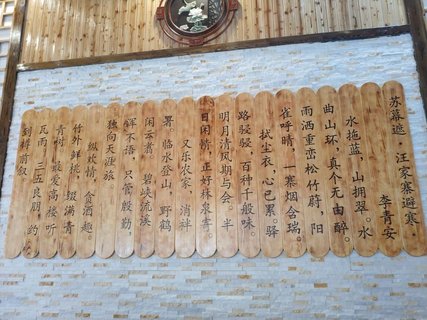 苏幕遮·汪家寨避寒
李青安
水拖蓝,山拥翠。水
曲山环,真个无由醉。
雨洒重峦松竹薜 阳
雀呼晴,一寨烟含瑞。
拭尘衣,心已累。驿
路骎骎,百种千般味。
明月清风期与会,半
日闲情,正好林泉寄。
又乐农家,消袢
署。临水登山,野鹤
闲云翥。 碧峡流溪
浑不语,只管殷勤,
独向天涯旅
纵欢情,贪酒趣。
竹外鲜桃,缀满青
青树。最爱高楼听
瓦雨,三五良朋,约
到樽前叙